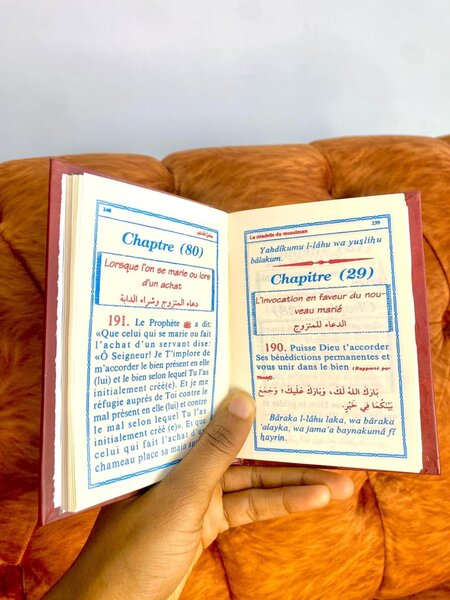 La citadelle du musulman 239
Yahdîkumu l-lâhu wa yuṣliḥu
bâlakum.
Chapitre (29)
L'invocation en faveur du nou-
veau marié
الدعاء للمتزوج
190. Puisse Dieu t'accorder
Ses bénédictions permanentes et
vous unir dans le bien (Rapporté par
Tirmidhî).
بَارَكَ اللهُ لَكَ، وَبَارَكَ عَلَيْكَ، وَجَمَعَ
بَيْنَكُمَا فِي خَيْرٍ.
Bâraka l-lâhu laka, wa bâraka
'alayka, wa jama'a baynakumâ fî
ḫayrin.
240 حصن المسلم
Chaptre (80)
Lorsque l'on se marie ou lors
d'un achat
دعاء المتزوج وشراء الدابة
191. Le Prophète ﷺ a dit:
«Que celui qui se marie ou fait
l'achat d'un servant dise:
«Ô Seigneur! Je T'implore de
m'accorder le bien présent en elle
(lui) et le bien selon lequel Tu l'as
initialement créé(e). Et je me
réfugie auprès de Toi contre le
mal présent en elle (lui) et contre
le mal selon lequel Tu l'as
initialement créé (e)». Et que
celui qui fait l'achat d'un
chameau place sa main sur